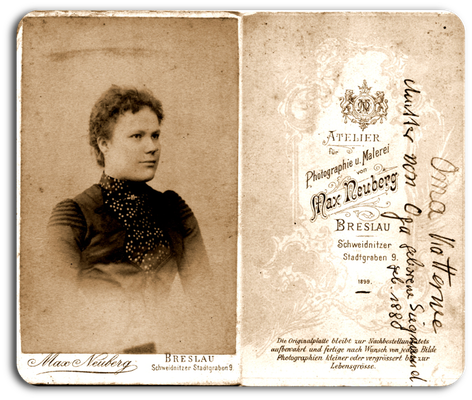 Max Neuberg
BRESLAU
Schweidnitzer Stadtgraben 9
N
ATELIER
für
Photographie u. Malerei
von
Max Neuberg
BRESLAU
Schweidnitzer
Stadtgraben 9.
1899.
Die Originalplatte bleibt zur Nachbestellung stets
aufbewahrt und fertige nach Wunsch von jedem Bilde
Photographien kleiner oder vergrössert bis zur
Lebensgrösse.
Oma
Mutter von Olga geborene
geb. 1880